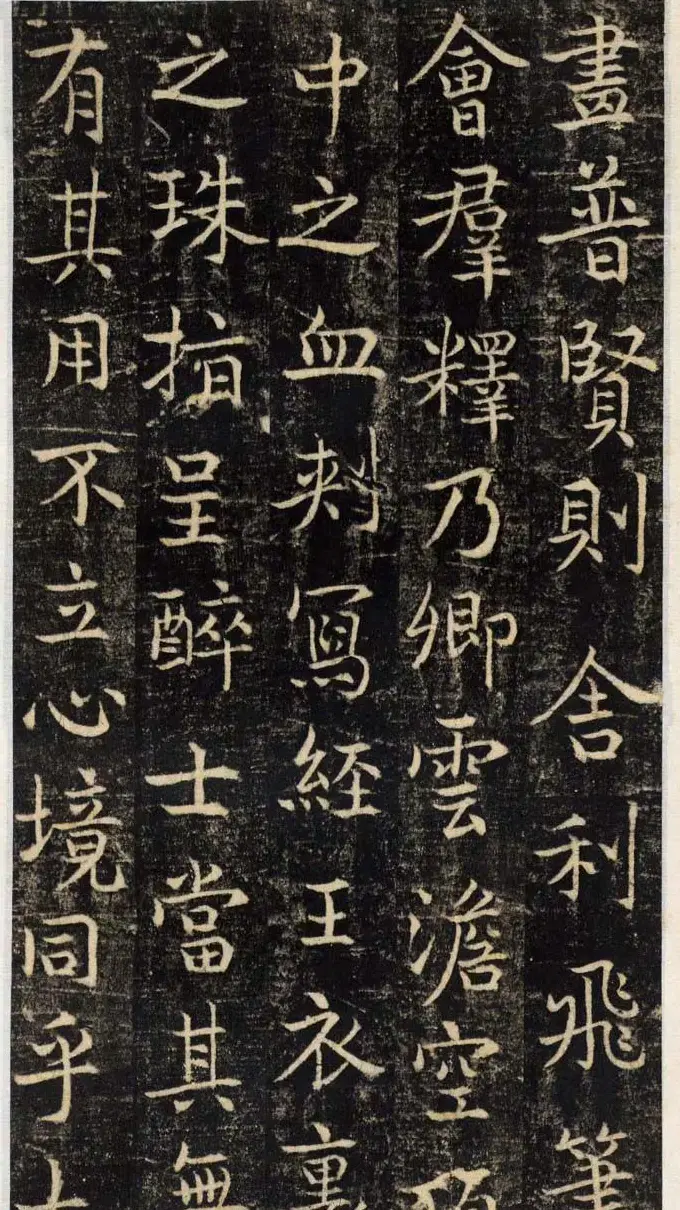 畫普賢則舍利飛筆
會羣釋乃卿雲澹空
中之血刺寫經王衣裏
之珠指呈醉士當其無
有其用不立心境同乎